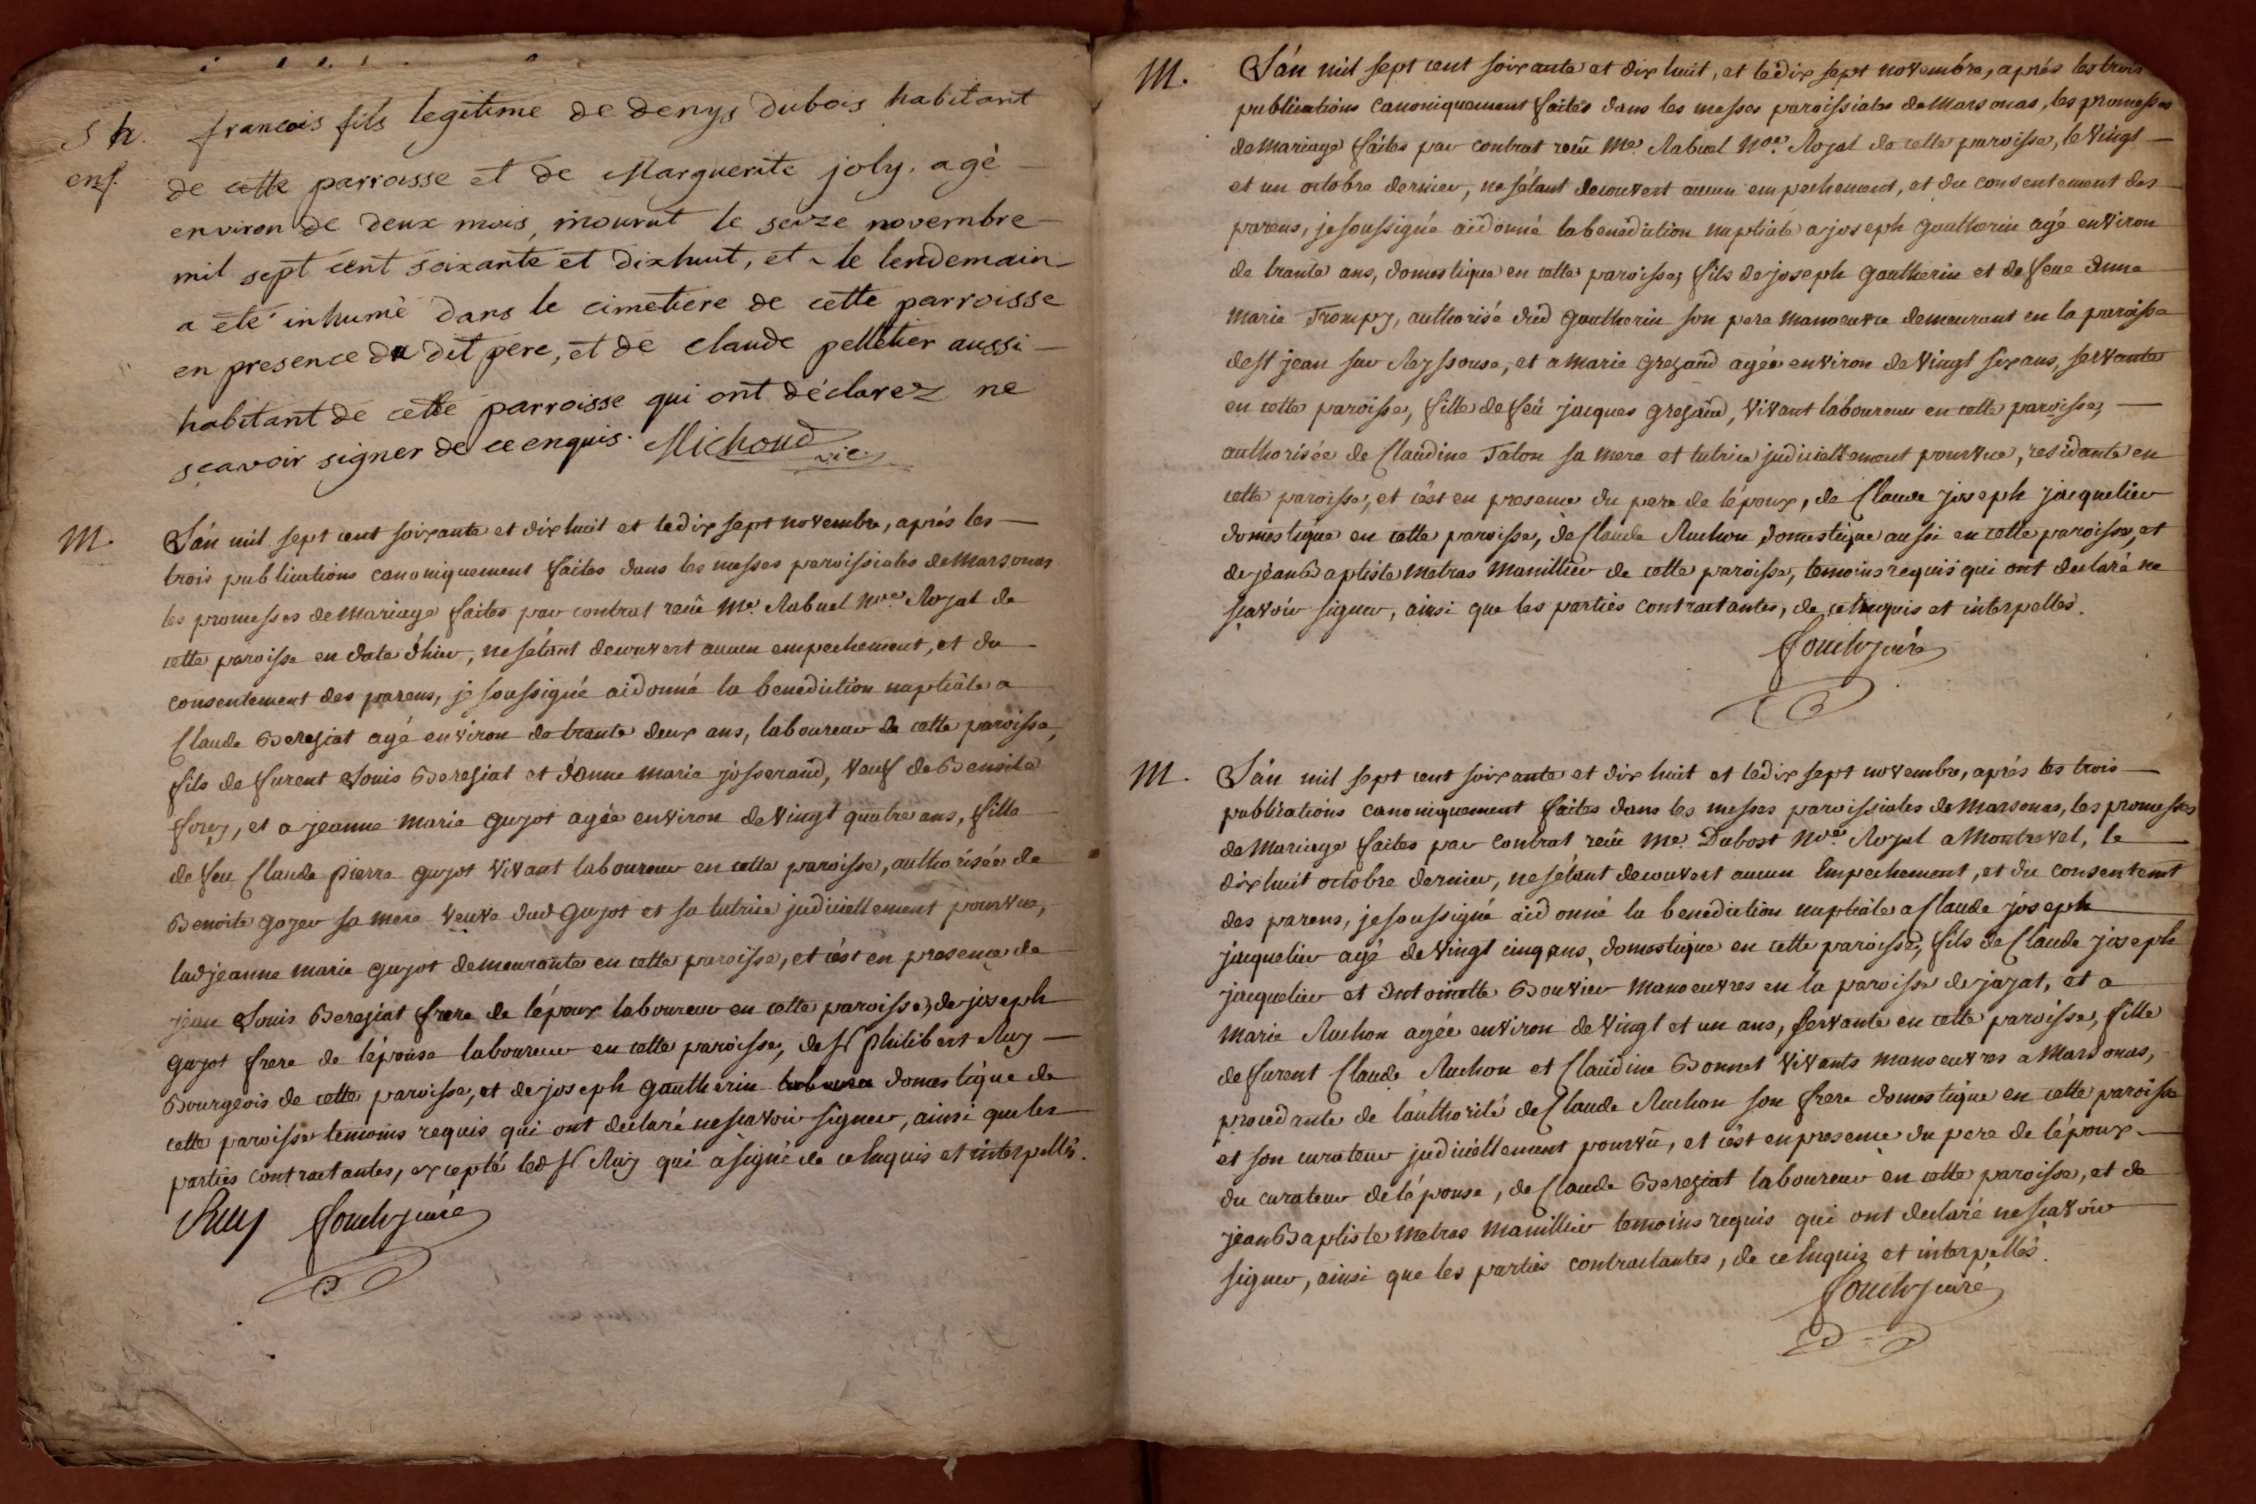 S h. francois fils legitime de denys dubois habitant
enf. de cette parroisse et de Marguerite joly. agé
environ de deux mois, mourut le seize novembre
mil sept cent soixante et dixhuit, et le lendemain
a eté inhumé dans le cimetiere de cette parroisse
en presence du dit pere, et de claude pelletier aussi
habitant de cette parroisse qui ont déclarez ne
sçavoir signer de ce enquis. Michoud vic.
M. L'an mil sept cent soixante et dix huit et le dix sept novembre, aprés les
trois publications canoniquement faites dans les messes paroissiales de Marsonas
les promesses de Mariage faites par contrat reçu Me. Rabuel Nre. Royal de
cette paroisse en date d'hier, ne s'étant decouvert aucun empechement, et du
consentement des parens, je soussigné ai donné la benediction nuptiale a
Claude Bereziat agé environ de trente deux ans, laboureur de cette paroisse,
fils de furent Louis Bereziat et d'anne marie josserand, veuf de Benoite
forey, et a jeanne marie guyot agée environ de vingt quatre ans, fille
de feu Claude pierre guyot vivant laboureur en cette paroisse, authorisée de
Benoite gozer sa mere veuve dud guyot et sa tutrice judiciellement pourvue,
lad jeanne marie guyot demeurante en cette paroisse, et c'est en presence de
jean Louis Bereziat frere de l'époux laboureur en cette paroisse, de joseph
guyot frere de l'épouse laboureur en cette paroisse, de Sr philibert Ruy
Bourgeois de cette paroisse, et de joseph gautherin domestique de
cette paroisse temoins requis qui ont declaré ne scavoir signer, ainsi que les
parties contractantes, excepté led Sr Ruy qui a signé de ce Enquis et interpellé.
Ruy curé
M. L'an mil sept cent soixante et dix huit, et le dix sept novembre, aprés les trois
publications canoniquement faites dans les messes paroissiales de Marsonas, les promesses
de Mariage faites par contrat reçu Me. Rabuel Nre. Royal de cette paroisse, le vingt
et un octobre dernier, ne s'étant decouvert aucun empechement, et du consentement des
parens, je soussigné ai donné la benediction nuptiale a joseph gautherin agé environ
de trante ans, domestique en cette paroisse, fils de joseph gautherin et de feue Anne
marie Trompy, authorisé dud gautherin son pere manoeuvre demeurant en la paroisse
de St jean sur Reyssouse, et a marie grezaud agée environ de vingt six ans, servante
en cette paroisse, fille de feu jacques grezaud, vivant laboureur en cette paroisse,
authorisée de Claudine Talon sa mere et tutrice judiciellement pourvue, residante en
cette paroisse, et c'est en presence du pere de l'époux, de Claude joseph jacquelin
domestique en cette paroisse, de Claude Ruchon domestique aussi en cette paroisse, et
de jean Baptiste Metras Manillier de cette paroisse, temoins requis qui ont declaré ne
sçavoir signer, ainsi que les parties contractantes, de ce Enquis et interpellés.
curé
M. L'an mil sept cent soixante et dix huit et le dix sept novembre, aprés les trois
publications canoniquement faites dans les messes paroissiales de Marsonas, les promesses
de Mariage faites par contrat reçu Me. Dubost Nre. Royal a Montrevel, le
dix huit octobre dernier, ne s'étant decouvert aucun Empechement, et du consentemt
des parens, je soussigné ai donné la benediction nuptiale a Claude joseph
jacquelin agé de vingt cinq ans, domestique en cette paroisse, fils de Claude joseph
jacquelin et Antoinette Bouvier manoeuvres en la paroisse de jayat, et a
Marie Ruchon agée environ de vingt et un ans, servante en cette paroisse, fille
de furent Claude Ruchon et Claudine Bonnet vivants manoeuvres a Marsonas,
procedante de l'authorité de Claude Ruchon son frere domestique en cette paroisse
et son curateur judiciellement pourvû, et c'est en presence du pere de l'époux
du curateur de l'épouse, de Claude Bereziat laboureur en cette paroisse, et de
jean Baptiste Metras Manillier temoins requis qui ont declaré ne sçavoir
signer, ainsi que les parties contractantes, de ce Enquis et interpellés.
curé